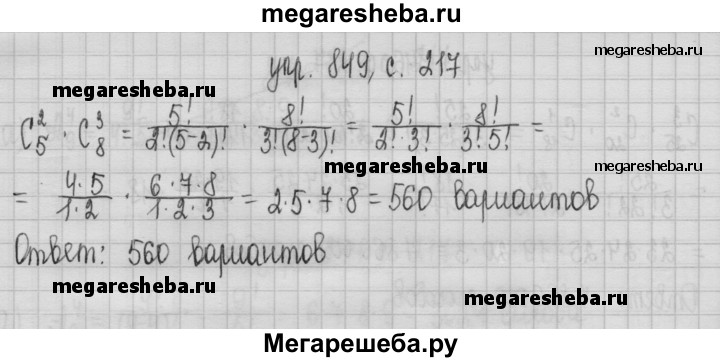 megaresheba.ru
упр. 849, с. 217
megaresheba.ru
megaresheba.ru
C₅² · C₈³ = 5!/2!(5-2)! · 8!/3!(8-3)! = 5!/2!·3! · 8!/3!·5! =
megaresheba.ru
megaresheba.ru
= 4·5/1·2 · 6·7·8/1·2·3 = 2·5·7·8 = 560 вариантов
Ответ: 560 вариантов
megaresheba.ru
megaresheba.ru
Мегарешеба.ру